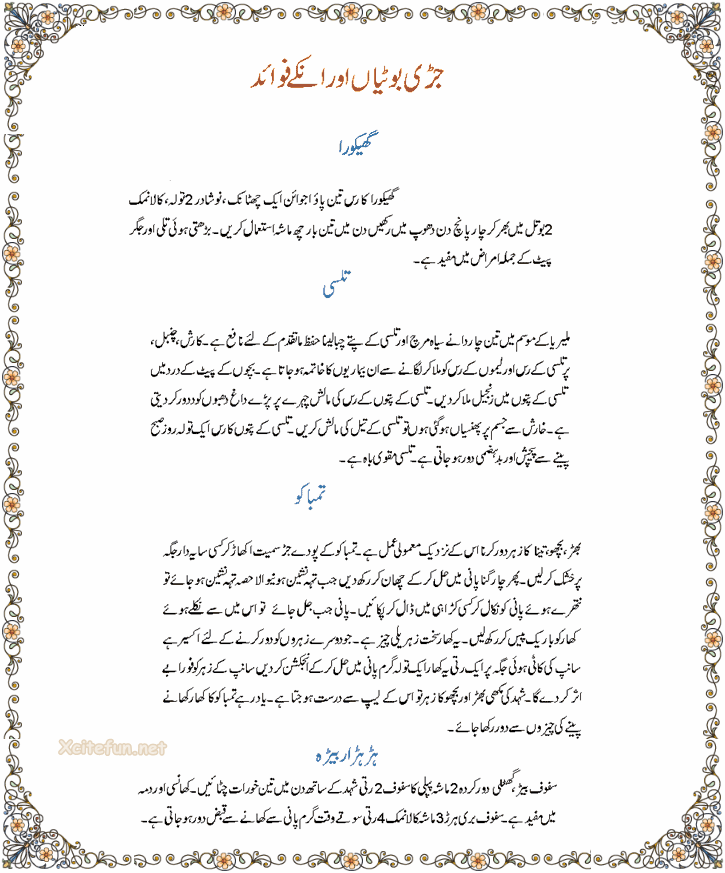 جڑی بوٹیاں اور انکے فوائد
گھیکورا
گھیکورا کا رس تین پاؤ اجوائن ایک چھٹانک، نوشادر 2 تولہ، کالا نمک
2 بوتل میں بھر کر چار پانچ دن دھوپ میں رکھیں دن میں تین بار چھ ماشہ استعمال کریں۔ بڑھتی ہوئی تلی اور جگر
پیٹ کے جملہ امراض میں مفید ہے۔
تلسی
ملیریا کے موسم میں تین چار دانے سیاہ مرچ اور تلسی کے پتے چبا لینا حفظ ماتقدم کے لئے نافع ہے۔ کارش، چنبل،
پر تلسی کے رس اور لیموں کے رس کو ملا کر لگانے سے ان بیماریوں کا خاتمہ ہو جاتا ہے۔ بچوں کے پیٹ کے درد میں
تلسی کے پتوں میں زنجبیل ملا کر دیں۔ تلسی کے پتوں کے رس کی مالش چہرے پر پڑے داغ دھبوں کو ددور کر دیتی
ہے۔ خارش سے جسم پر پھنسیاں ہو گئی ہوں تو تلسی کے تیل کی مالش کریں۔ تلسی کے پتوں کا رس ایک تولہ روز صبح
پینے سے پیچش اور بد ہضمی دور ہو جاتی ہے۔ تلسی مقوی باہ ہے۔
تمباکو
بھڑ، بچھو، تینا کا زہر دور کرنا اس کے نزدیک معمولی عمل ہے۔ تمباکو کے پودے جڑ سمیت اکھاڑ کر کسی سایہ دار جگہ
پر خشک کر لیں۔ پھر چار گنا پانی میں حل کر کے چھان کر رکھ دیں جب تہہ نشین ہونیوالا حصہ تہہ نشین ہو جائے تو
نتھرے ہوئے پانی کو نکال کر کسی کڑاہی میں ڈال کر پکائیں۔ پانی جب جل جائے تو اس میں سے نکلے ہوئے
کھار کو باریک پیس کر رکھ لیں۔ یہ کھار سخت زہریلی چیز ہے۔ جو دوسرے زہروں کو دور کرنے کے لئے اکسیر ہے
سانپ کی کاٹی ہوئی جگہ پر ایک رتی یہ کھار ایک تولہ گرم پانی میں حل کر کے انجکشن کر دیں سانپ کے زہر کو فورا بے
اثر کر دے گا۔ شہد کی مکھی بھڑ اور بچھو کا زہر تو اس کے لیپ سے درست ہو جتا ہے۔ یاد رہے تمباکو کا کھار کھانے
پینے کی چیزوں سے دور رکھا جائے۔
Xcitefun.net
ہڑ ہڑار بیڑہ
سفوف بیڑ، گھٹلی دور کردہ 2 ماشہ پپلی کا سفوف 2 رتی شہد کے ساتھ دن میں تین خورات چٹائیں۔ کھانسی اور دمہ
میں مفید ہے۔ سفوف بری ہرڑ 3 ماشہ کالا نمک 4 رتی سوتے وقت گرم پانی سے کھانے سے قبض دور ہو جاتی ہے۔